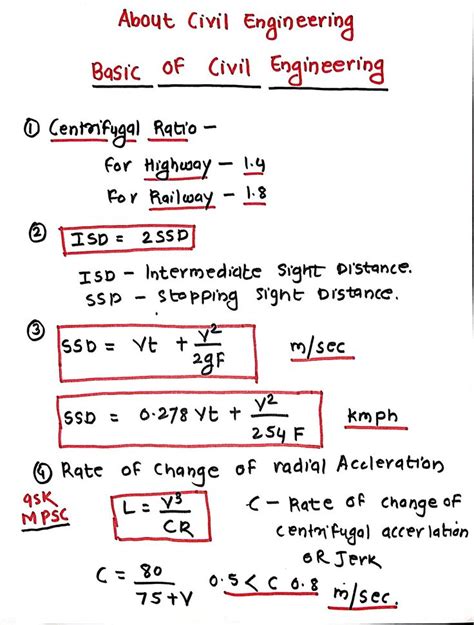 About Civil Engineering
Basic of Civil Engineering
① Centrifugal Ratio -
for Highway - 1.4
For Railway - 1.8
② ISD = 2SSD
ISD - Intermediate Sight Distance.
SSD - Stopping Sight Distance.
③ SSD = Vt + V²/2gF m/sec
SSD = 0.278 Vt + V²/254 F kmph
④ Rate of Change of radial Accleration
ask MPSC
L = V³/CR
C - Rate of change of
centrifugal accerlation
OR Jerk
C = 80/75+V 0.5 < C 0.8 m/sec.